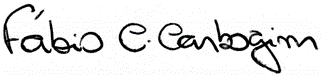 Fábio C. Carbogim